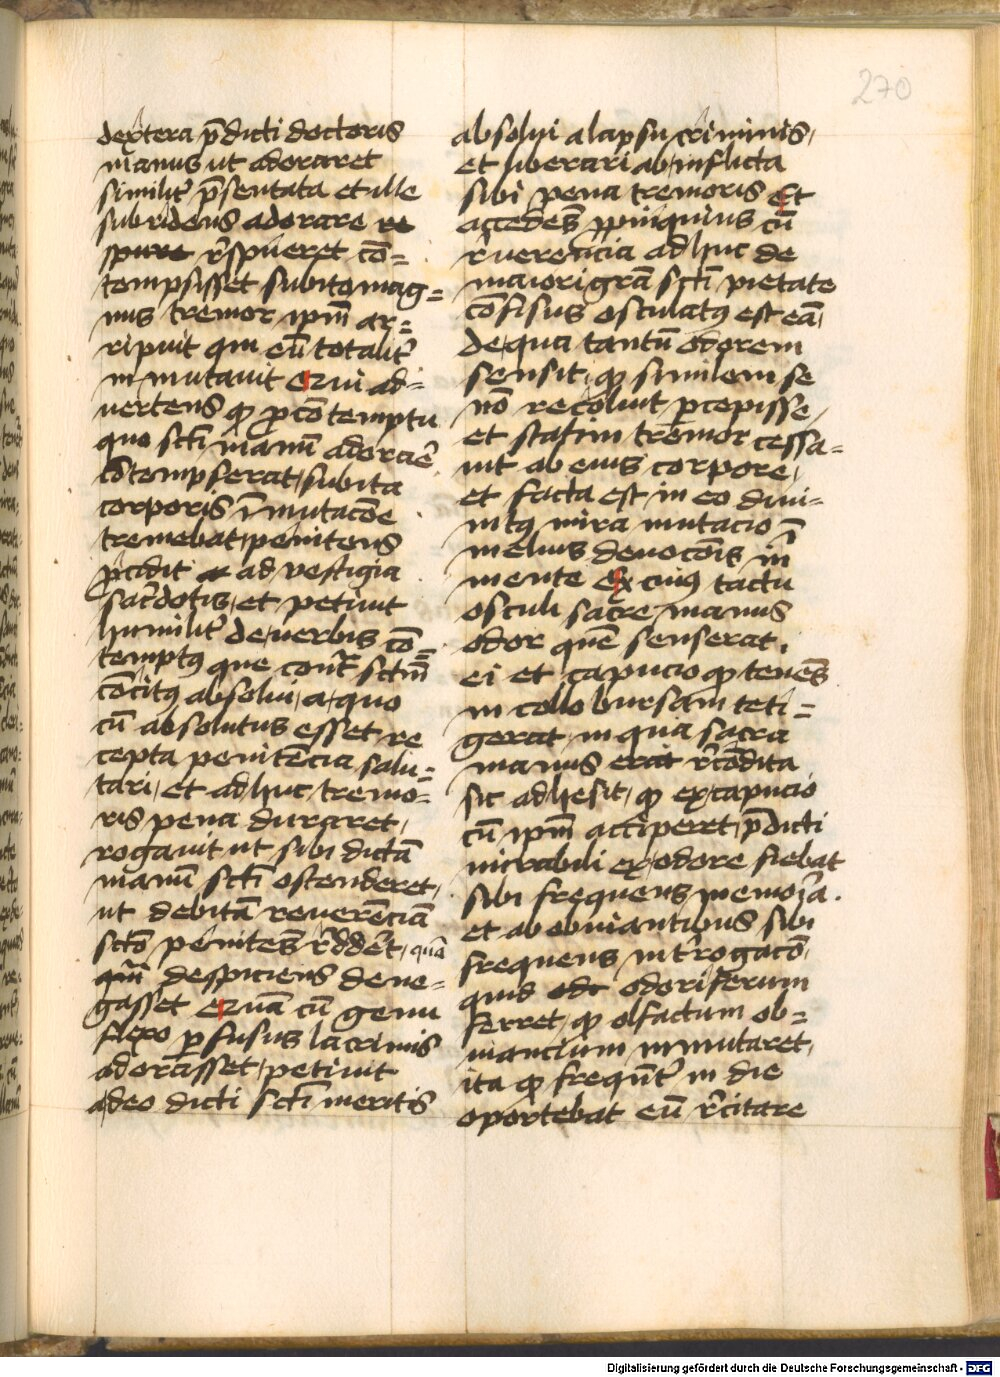 270
dextera p̄dicti doctoris
manus ut adoraret
similit᷑ p̄sentata et ille
subridens adorare re
spure r᷑spueret cō=
tempsisset subito mag=
nus tremor ip̄m ar=
ripuit qui eū totalit᷑
inmutavit Qui ad=
vertens qꝫ ꝓ contemptu
quo scti manū adorare
cōtempserat subita
corporis īmutacōe
tremebat penitens
p᷑cidit ad vestigia
sac᷑dotis et petiuit
humilit᷑ de verbis cō=
temptꝰ que cont᷑ sctm̄
cōcitꝰ absolui a quo
cū absolutus esset re
cepta penitēcia salu=
tari et adhuc tremo=
ris pena duraret
rogauit ut sibi dictā
manū scti ostenderet
ut debitā reuerēciā
scto penitēs r᷑dd᷑et quā
despiciens dene=
gasset Quā cū genu
flexo ꝑfusus lacrimis
adorasset petiuit
adeo dicti scti meritis
absolui a lapsu criminis
et liberari ab inflicta
sibi pena tremoris Et
accedēs ꝓpinquius cū
r᷑uerencia adhuc de
maiori gr̄a scti pietate
cōfisus osculatꝰ est eā
de qua tantū odorem
sensit qꝫ similem se
nō recoluit p᷑cepisse
et statim tremor cessa=
uit ab eius corpore
et facta est in eo diui=
nitꝰ mira mutacio ī
melius deuocōis in
mente Ex cuiꝰ tactu
osculi sacre manus
odor quē senserat
ei et capucio qꝫ tenēs
in collo bursam teti=
gerat in qua sacra
manus erat r᷑condita
sic adhesit qꝫ ex capucio
cū ip̄m acciperet p̄dicti
mirabili ex odore fiebat
sibi frequens memoria
et ab obuiantibus sibi
frequens int᷑rogacō
quid odoriferum
ferret qꝫ olfactum ob=
uiancium inmutaret
ita qꝫ frequnt᷑ in die
oportebat eū r᷑citare
Digitalisierung gefördert durch die Deutsche Forschungsgemeinschaft - DFG